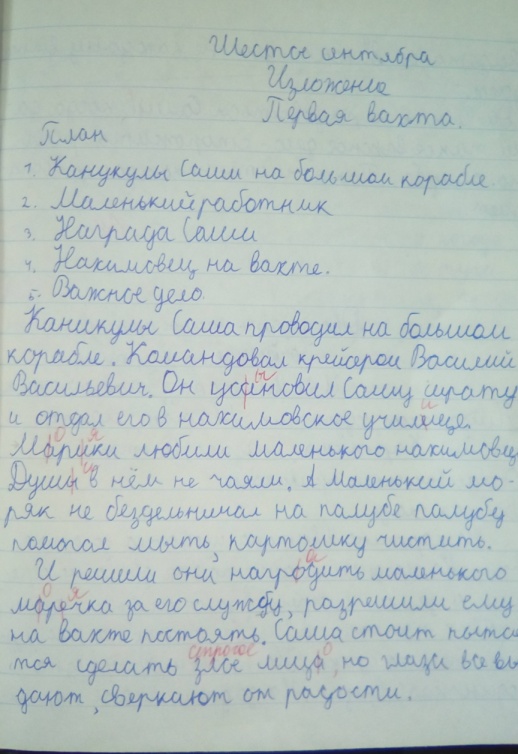 Шестое сентября
Изложение
Первая вахта.
План
1. Канукулы Саши на большом корабле
2. Маленький работник
3. Награда Саши
4. Нахимовец на вахте.
5. Важное дело.
Каникулы Саша проводил на большом
корабле. Командовал крейсером Василий
Васильевич. Он усиновил Сашу
и отдал его в нахимовское училище.
Марики любили маленького нахимовца
Душы в нём не чаяли. А Маленький мо-
ряк не бездельничал на палубе палубу
помогал мыть, картошку чистить.
И решили они нагродить маленького
маречка за его службу, разрешили ему
на вахте постоять. Саша стоит пыта
тся сделать злое лица, но глаза все вы
дают, сверкают от радости.